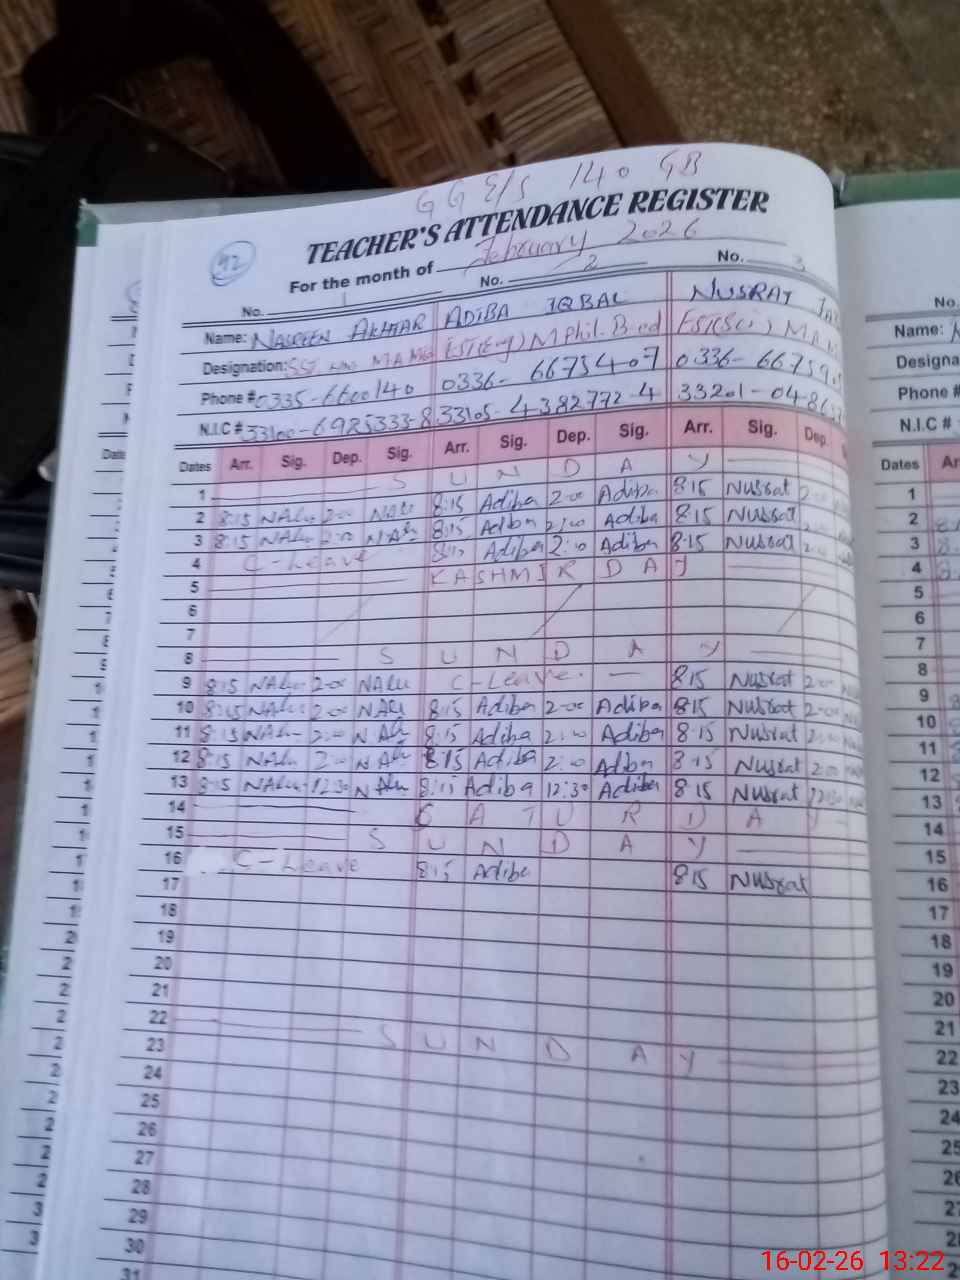 GG E/S 140 GB
TEACHER'S ATTENDANCE REGISTER
42
For the month of February 2026
No. 1 No. 2 No. 3
Name: NASREEN AKHTAR ADIBA IQBAL NUSRAT
Designation: SST MA EST(Eng) M Phil. B.ed EST(Sci) M.A
Phone # 0335-6600140 0336-6675407 0336-66759
N.I.C # 33100-6925333-8 33105-4382772-4 33201-04-86
Dates Arr. Sig. Dep. Sig. Arr. Sig. Dep. Sig. Arr. Sig. Dep.
1 S U N D A Y
2 8:15 NAkh 2:00 NAkh 8:15 Adiba 2:00 Adiba 8:15 Nusrat 2:00
3 8:15 NAkh 2:00 NAkh 8:15 Adiba 2:00 Adiba 8:15 Nusrat
4 C-Leave 8:15 Adiba 2:00 Adiba 8:15 Nusrat 2:00
5 KASHMIR DAY
6
7
8 S U N D A Y
9 8:15 NAkh 2:00 NAkh C-Leave. 8:15 Nusrat 2:00
10 8:15 NAkh 2:00 NAkh 8:15 Adiba 2:00 Adiba 8:15 Nusrat 2:00
11 8:15 NAkh 2:00 NAkh 8:15 Adiba 2:00 Adiba 8:15 Nusrat 2:00
12 8:15 NAkh 2:00 NAkh 8:15 Adiba 2:00 Adiba 8:15 Nusrat 2:00
13 8:15 NAkh 12:30 NAkh 8:15 Adiba 12:30 Adiba 8:15 Nusrat 12:30
14 S A T U R D A Y
15 S U N D A Y
16 C-Leave 8:15 Adiba 8:15 Nusrat
17
18
19
20
21
22 S U N D A Y
23
24
25
26
27
28
29
30
31
No.
Name:
Designa
Phone #
N.I.C #
Dates Arr
1
2
3
4
5
6
7
8
9
10
11
12
13
14
15
16
17
18
19
20
21
22
23
24
25
26
27
16-02-26 13:22